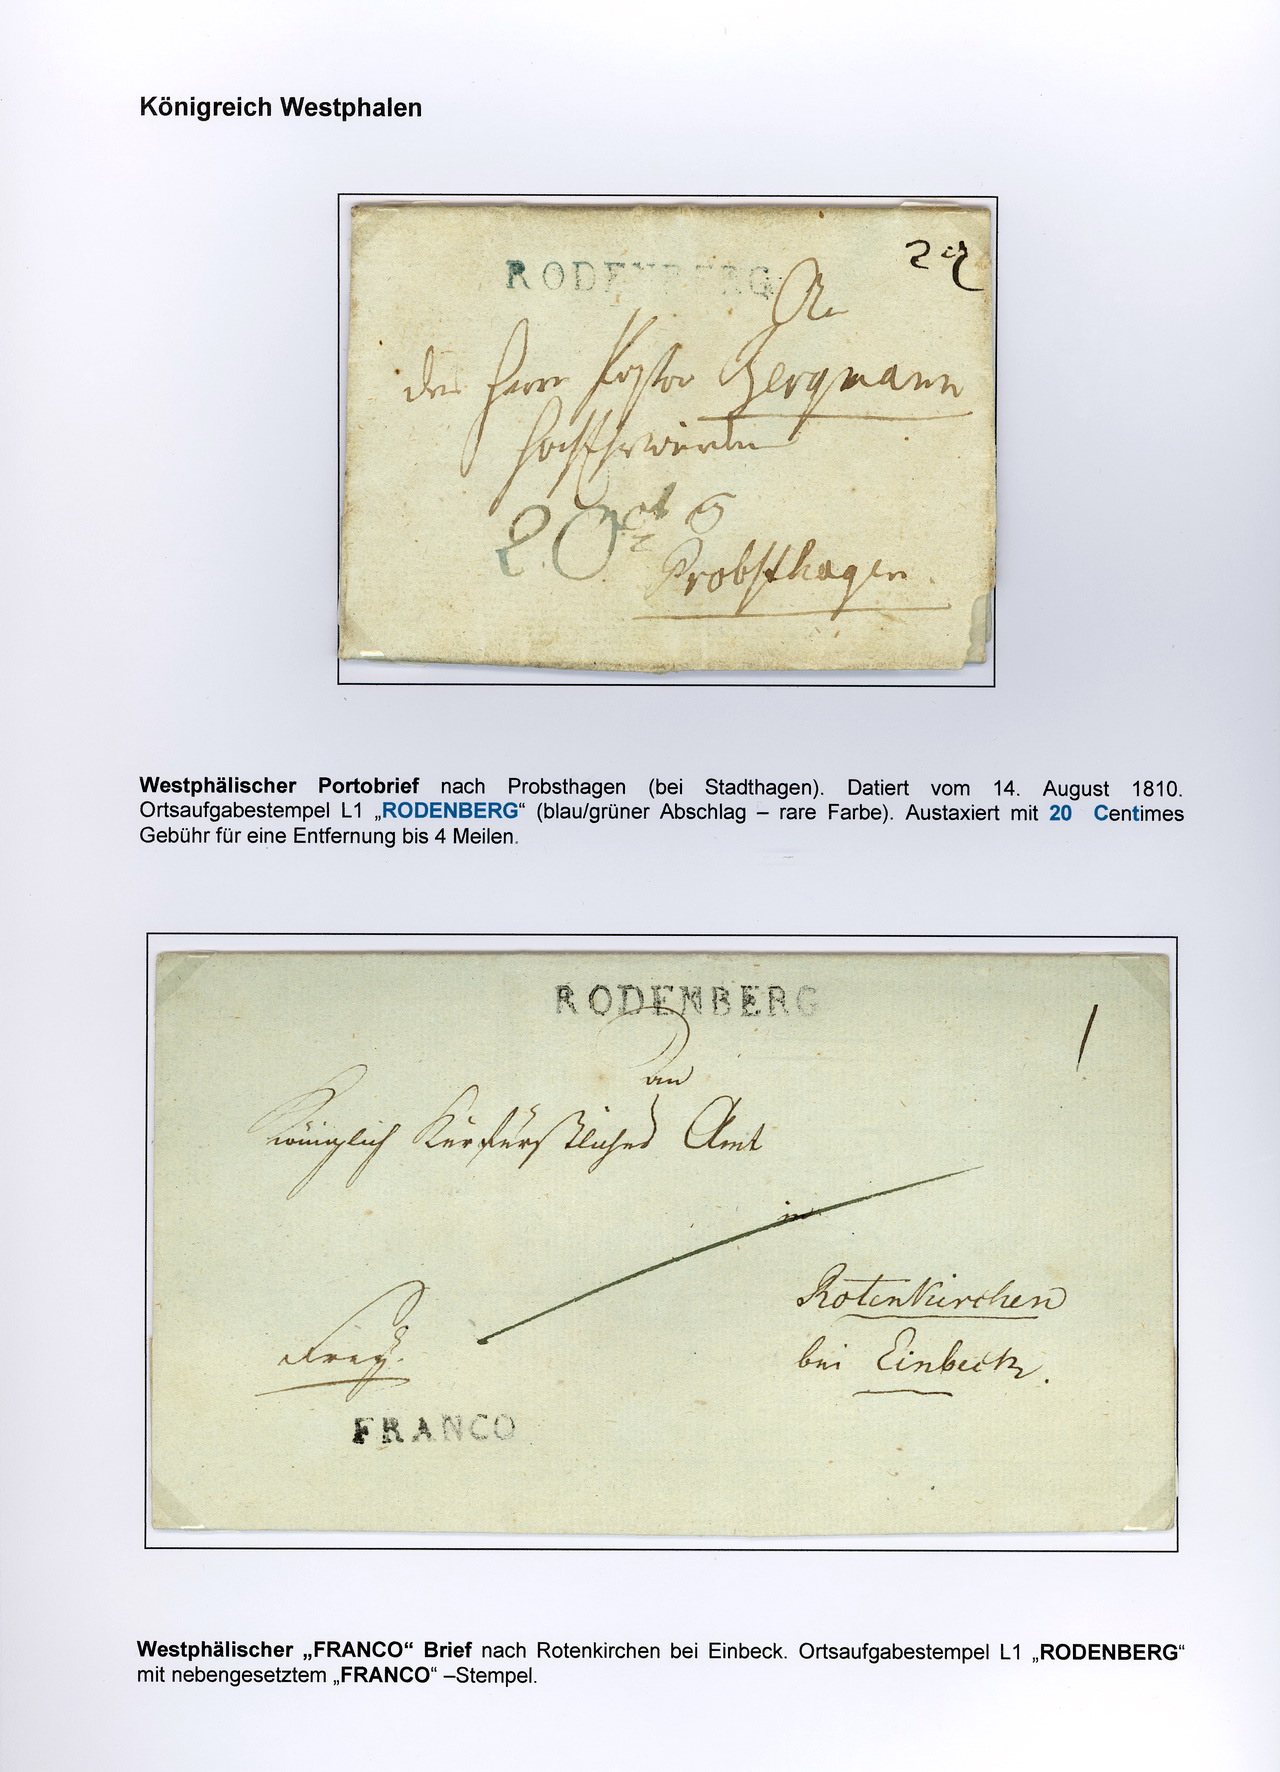 Königreich Westphalen
RODENBERG
An
den Herrn Pastor Bergmann
20 ct
Probsthagen
Westphälischer Portobrief nach Probsthagen (bei Stadthagen). Datiert vom 14. August 1810.
Ortsaufgabestempel L1 „RODENBERG“ (blau/grüner Abschlag – rare Farbe). Austaxiert mit 20 Centimes
Gebühr für eine Entfernung bis 4 Meilen.
RODENBERG
an
Königlich Kurfürstliches Amt
in
Rotenkirchen
Frey.
bei Einbeck.
FRANCO
Westphälischer „FRANCO“ Brief nach Rotenkirchen bei Einbeck. Ortsaufgabestempel L1 „RODENBERG“
mit nebengesetztem „FRANCO“ –Stempel.